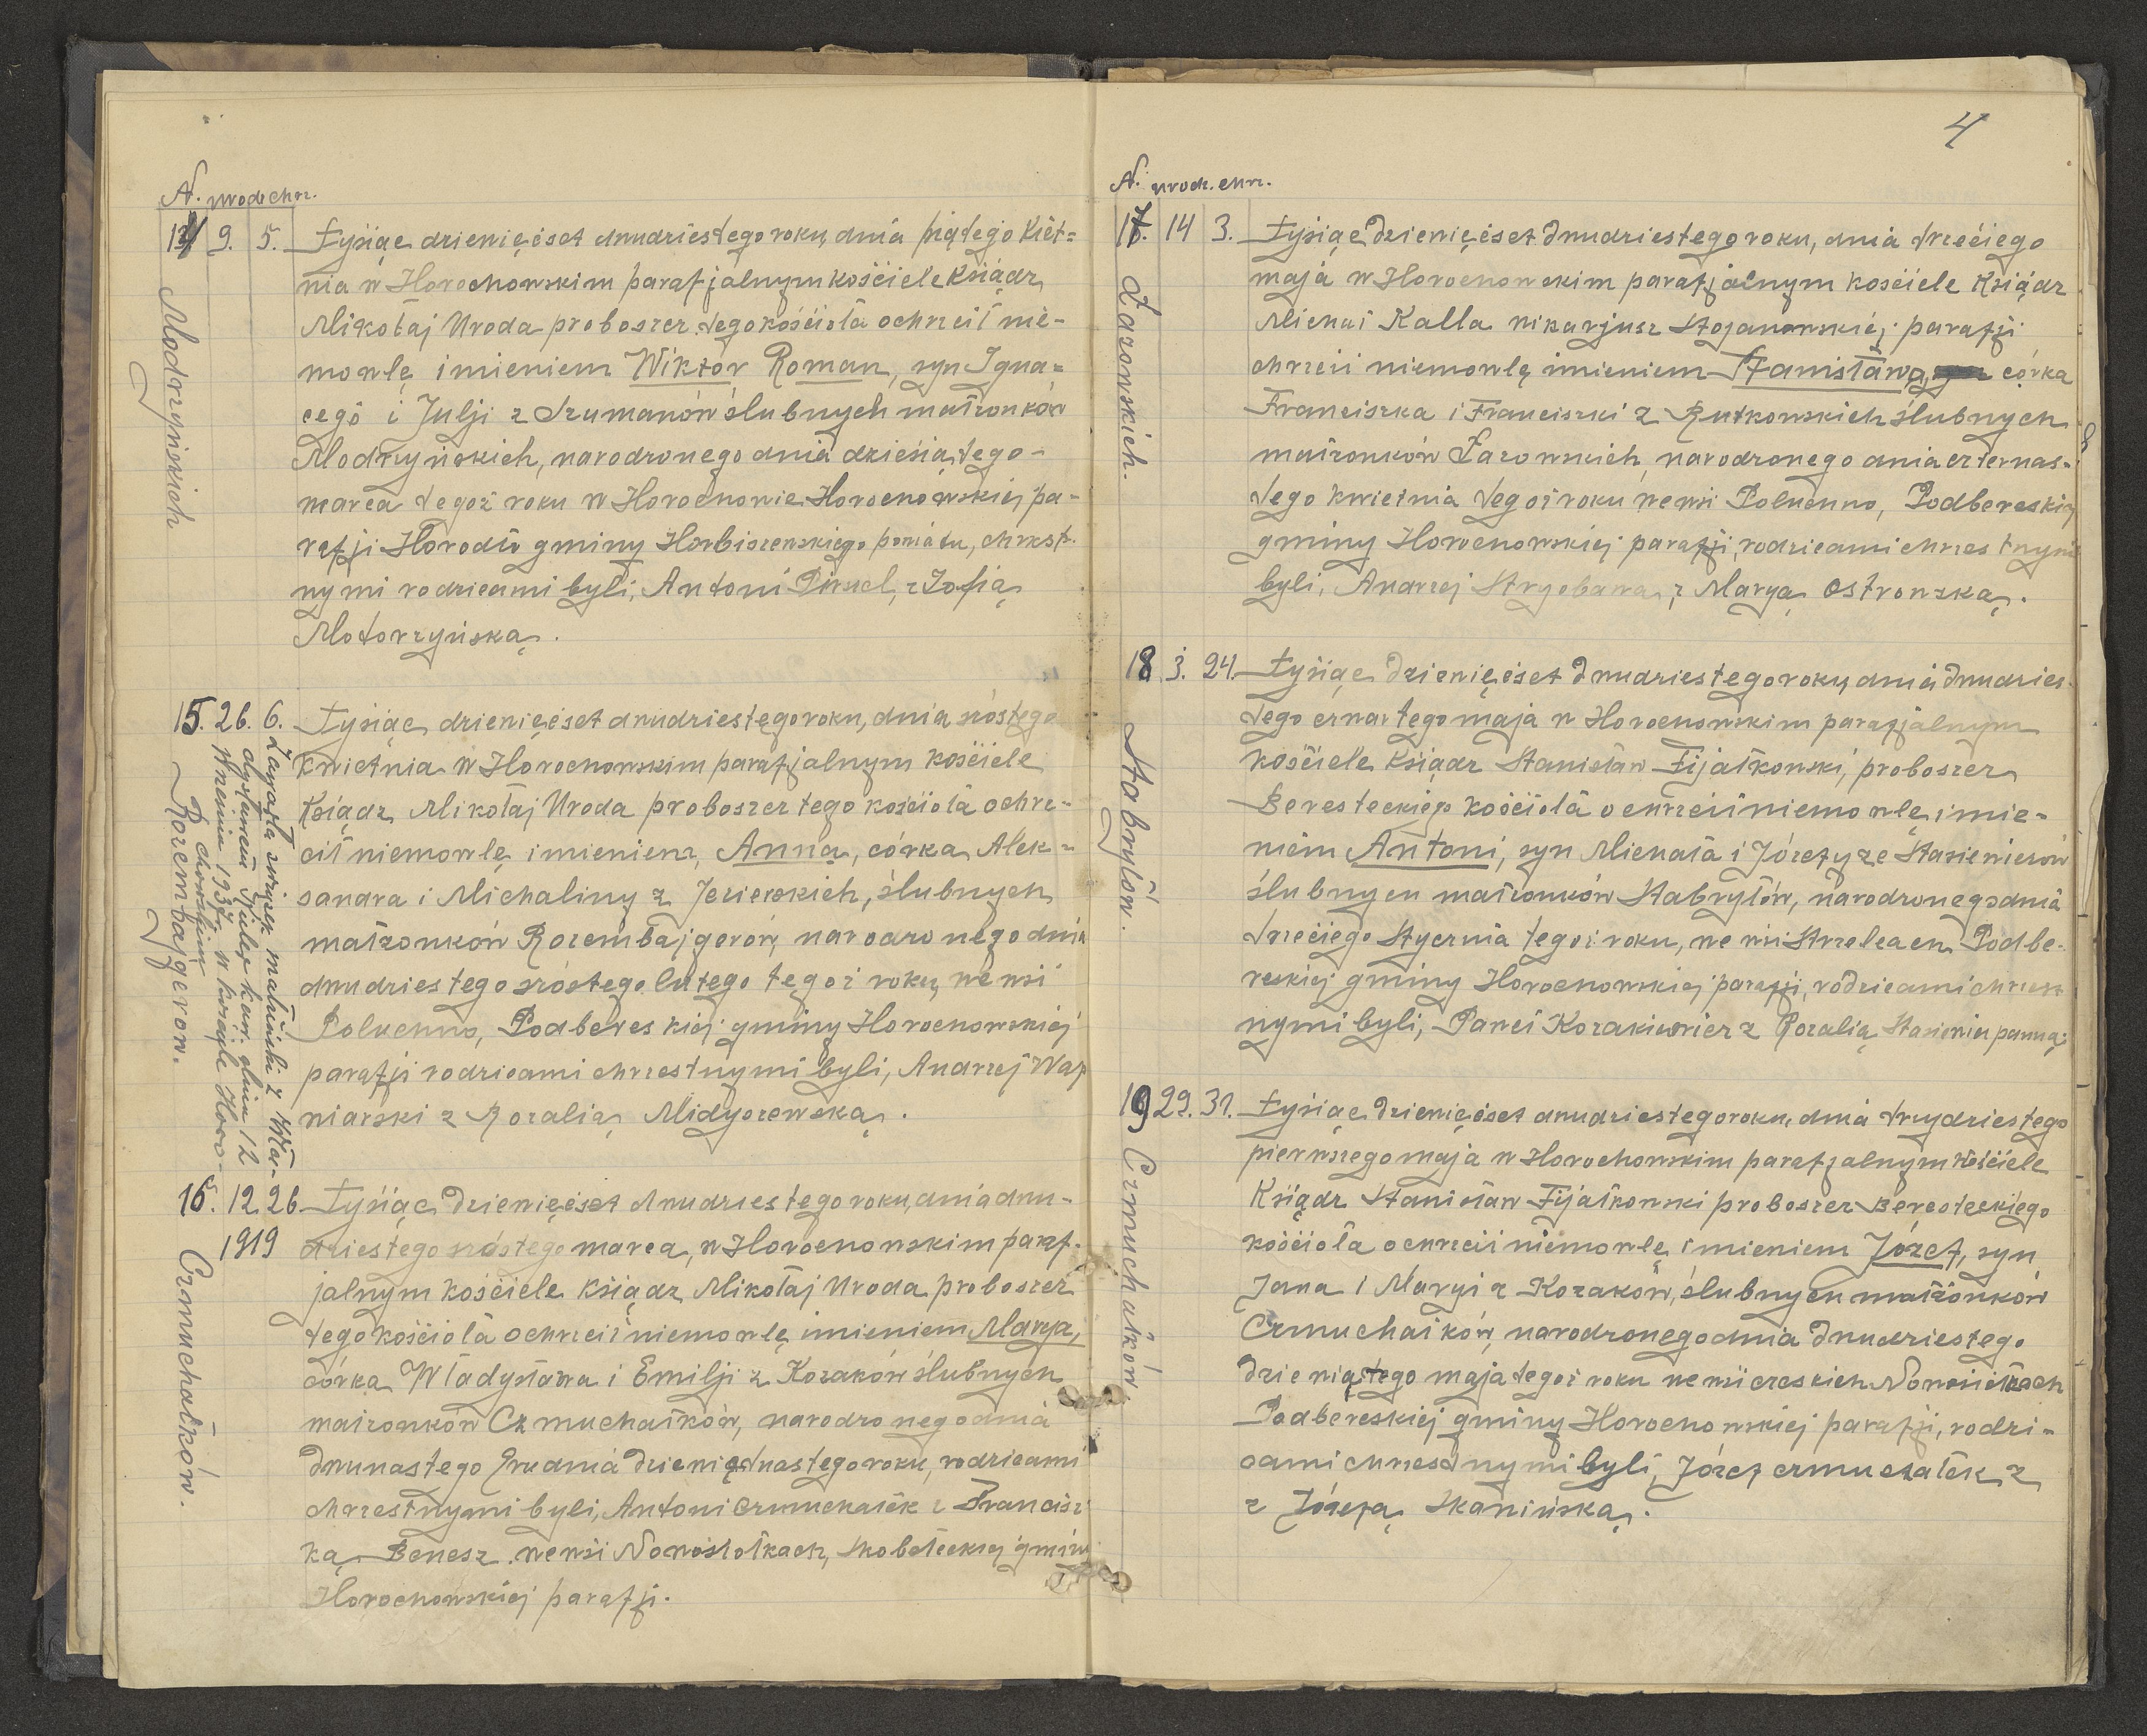 N. urodz chrz.
14 9. 5. Tysiąc dziewięćset dwudziestego roku, dnia piątego Kiet=
nia w Horochowskim parafjalnym kościele Ksiądz
Mikołaj Uroda proboszcz tego kościoła ochrzcił nie-
mowlę imieniem Wiktor Roman, syn Igna=
cego i Julji z Szumanów ślubnych małżonków
Modrzyńskich, narodzonego dnia dziesiątego-
marca tegoż roku w Horochowie Horochowskiej pa-
rafji Horodło gminy powiatu, chrzest-
nymi rodzicami byli, Antoni z Zofią
Motorzyńską.
Modrzyńskich
15. 26. 6. Tysiąc dziewięćset dwudziestego roku, dnia szóstego
Kwietnia w Horochowskim parafjalnym kościele
Ksiądz Mikołaj Uroda proboszcz tego kościoła ochrz-
cił niemowlę imieniem, Anna, córka Alek-
sandra i Michaliny z Jezierskich, ślubnych
małżonków Rozembajgerów, narodzonego dnia
dwudziestego szóstego lutego tegoż roku, we wsi
Poluchno, Podbereskiej gminy Horochowskiej
parafji rodzicami chrzestnymi byli, Andrzej Waż
niarski z Rozalią Midyszewską.
Zawarła związek małżeński z Wła-
dysławem kaw. dnia 12
Września 1937 w kośćiele Horo-
chowskim
Rozembajgerow.
16. 12. 26 Tysiąc dziewięćset dwudziestego roku, dnia dwu-
1919 dziestego szóstego marca, w Horochowskim paraf-
jalnym kościele ksiądz Mikołaj Uroda proboszcz
tego kościoła ochrzcił niemowlę imieniem Marya,
córka Władysława i Emilji z Kozaków ślubnych
małżonków Czmuchałków, narodzonego dnia
dwunastego Grudnia dziewiętnastego roku, rodzicami
chrzestnymi byli, Antoni Czmuchałek z Francisz
ką Benesz we wsi Nowosiołkach, Skobełeckiej gminy
Horochowskiej parafji.
Czmuchałków.
4
N. urodz. chrz.
17. 14 3. Tysiąc dziewięćset dwudziestego roku, dnia trzeciego
maja w Horochowskim parafjalnym kościele Ksiądz
Michał Kalla wikarjusz Stojanowskiej parafji
chrzcił niemowlę imieniem Stanisława, córka
Franciszka i Franciszki z Rutkowskich ślubnych
małżonków Łazowskich, narodzonego dnia czternas-
tego kwietnia tegoż roku we wsi Poluchno, Podbereskiej
gminy Horochowskiej parafji, rodzicami chrzestnymi
byli, Andrzej z Maryą Ostrowską.
Łazowskich.
18 3. 24. Tysiąc dziewięćset dwudziestego roku, dnia dwudzies
tego czwartego maja w Horochowskim parafjalnym
kościele Ksiądz Stanisław Fijałkowski, proboszcz
Beresteckiego kościoła ochrzcił niemowlę imie-
niem Antoni, syn Michała i Józefy ze Stasiewiczów
ślubnych małżonków Stabryłów, narodzonego dnia
trzeciego Stycznia tegoż roku, we wsi Strzelcach Podbe-
reskiej gminy Horochowskiej parafji, rodzicami chrzest
nymi byli, Paweł Kozakiewicz z Rozalią Stasiewicz panną.
Stabryłów.
19 29. 31. Tysiąc dziewięćset dwudziestego roku, dnia trzydziestego
pierwszego maja w Horochowskim parafjalnym kościele
Ksiądz Stanisław Fijałkowski proboszcz Beresteckiego
kościoła ochrzcił niemowlę imieniem Józef, syn
Jana i Maryi z Kozaków, ślubnych małżonków
Czmuchałków, narodzonego dnia dwudziestego
dziewiątego maja tegoż roku we wsi czeskich Nowosiółkach
Podbereskiej gminy Horochowskiej parafji, rodzi-
cami chrzestnymi byli, Józef Czmuchałek z
z Józefą Skanińską.
Czmuchałków